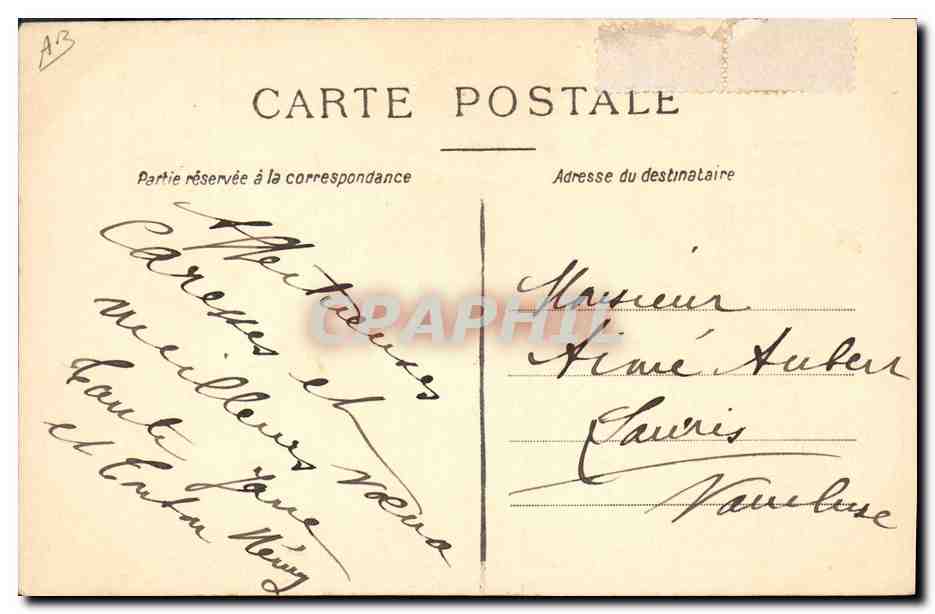 AB
CARTE POSTALE
Partie réservée à la correspondance
Adresse du destinataire
Affectueuses
Caresses et
meilleurs vœux
Tante Jane
et Tonton Rémy
Monsieur
Aimé Aubert
Lauris
Vaucluse
CPAPHIL